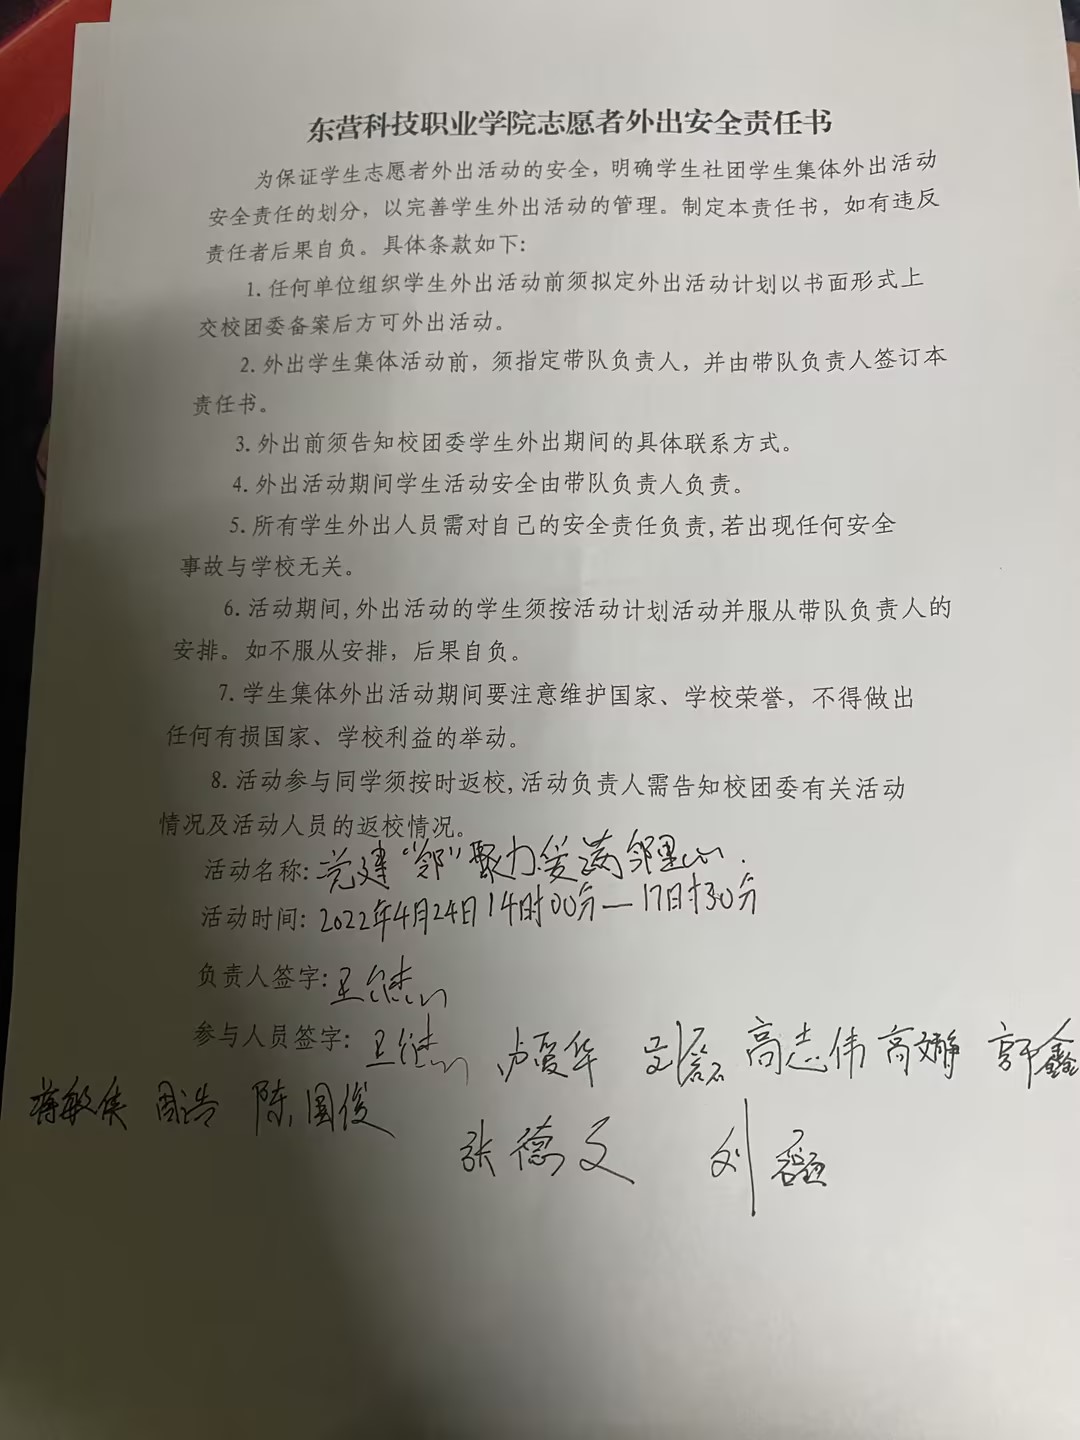 东营科技职业学院志愿者外出安全责任书
为保证学生志愿者外出活动的安全，明确学生社团学生集体外出活动
安全责任的划分，以完善学生外出活动的管理。制定本责任书，如有违反
责任者后果自负。具体条款如下：
1. 任何单位组织学生外出活动前须拟定外出活动计划以书面形式上
交校团委备案后方可外出活动。
2. 外出学生集体活动前，须指定带队负责人，并由带队负责人签订本
责任书。
3. 外出前须告知校团委学生外出期间的具体联系方式。
4. 外出活动期间学生活动安全由带队负责人负责。
5. 所有学生外出人员需对自己的安全责任负责,若出现任何安全
事故与学校无关。
6. 活动期间,外出活动的学生须按活动计划活动并服从带队负责人的
安排。如不服从安排，后果自负。
7. 学生集体外出活动期间要注意维护国家、学校荣誉，不得做出
任何有损国家、学校利益的举动。
8. 活动参与同学须按时返校,活动负责人需告知校团委有关活动
情况及活动人员的返校情况。
活动名称: 党建“邻”聚力爱满邻里
活动时间: 2022年4月24日14时00分—17时30分
负责人签字: 王
参与人员签字: 王 卢爱华 高志伟 高 郭鑫
蒋敏 周浩 陈国俊
张德文 刘